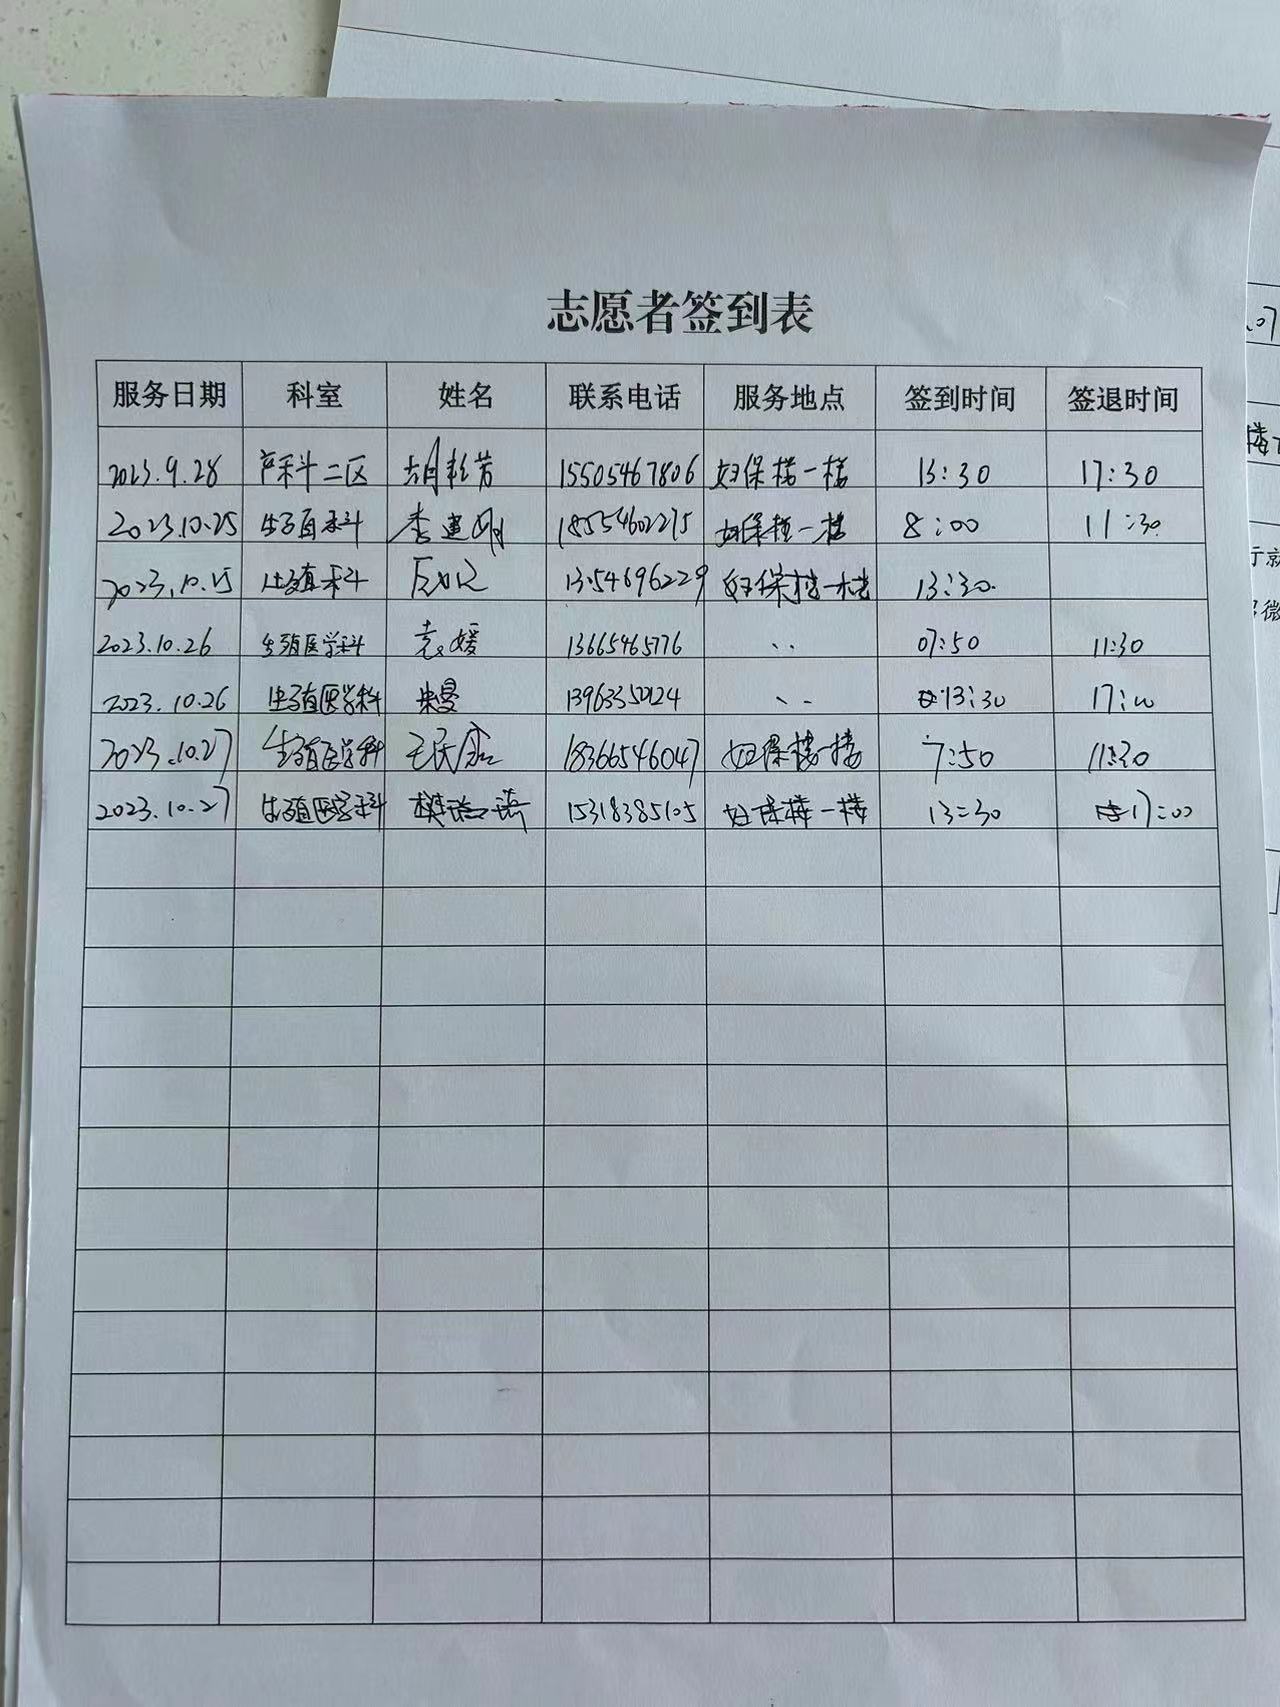 志愿者签到表
服务日期 科室 姓名 联系电话 服务地点 签到时间 签退时间
2023.9.28 产科二区 胡 芳 15505467806 妇保楼一楼 13:30 17:30
2023.10.25 生殖科 李建 18554602275 妇保楼一楼 8:00 11:30
2023.10.25 生殖科 妇保楼一楼 13:30
2023.10.26 生殖医学科 袁媛 13665465776 、、 07:50 11:30
2023.10.26 生殖医学科 、、 13:30 17:00
2023.10.27 生殖医学科 王民 18366546047 妇保楼一楼 7:50 11:30
2023.10.27 生殖医学科 15318385105 妇保楼一楼 13:30 17:00
.07
楼
行就
微